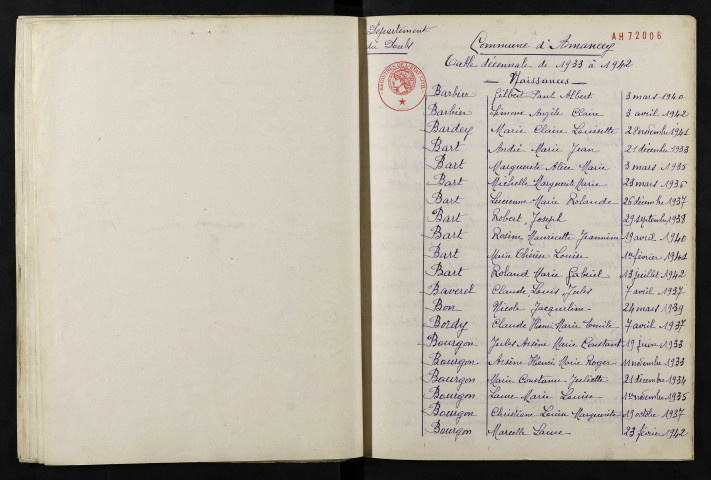 Département
du Doubs
AH72006
Commune d'Amancey
Table décennale de 1933 à 1942
Naissances
Barbier Gilbert Paul Albert 3 mars 1940
Barbier Simone Angèle Claire 3 avril 1942
Bardey Marie Claire Louisette novembre 1941
Bart André Marie Jean 21 décembre 1933
Bart Marguerite Alice Marie 3 mars 1935
Bart Michelle Marguerite Marie 23 mars 1936
Bart Lucienne Marie Rolande 26 décembre 1937
Bart Robert Joseph 29 septembre 1938
Bart Rosine Mauricette Jeannine 19 avril 1940
Bart Marie Thérèse Louise 1er février 1941
Bart Roland Marie Gabriel 13 juillet 1942
Baverel Claude Louis Jules 7 avril 1937
Bon Nicole Jacqueline 24 mars 1939
Bordy Claude Henri Marie Emile 7 avril 1937
Bourgon Jules Arsène Marie Constant 19 juin 1933
Bourgon Arsène Henri Marie Roger 11 novembre 1933
Bourgon Marie Constance Juliette 21 décembre 1934
Bourgon Laure Marie Louise 1er novembre 1935
Bourgon Christiane Louise Marguerite 19 octobre 1937
Bourgon Marcelle Laure 23 février 1942